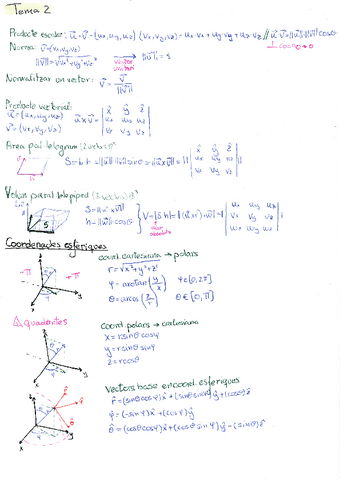 Tema 2
Producte escalar: ū·v̄ = (ux, uy, uz)·(vx, vy, vz) = ux·vx + uy·vy + uz·vz // ū·v̄ = ||ū||·||v̄|| cosθ
⊥ cos90 → 0
Norma: v̄ = (vx, vy, vz)
||v̄|| = √(vx² + vy² + vz²) → vector unitari ||v̄|| = 1
Normalitzar un vector: v̂ = v̄ / ||v̄||
Producte vectorial:
ū = (ux, uy, uz)
v̄ = (vx, vy, vz)
ū×v̄ = | x̂ ŷ ẑ |
| ux uy uz |
| vx vy vz |
Area
S = b·h = ||ū||·||v̄|| sinθ = ||ū×v̄|| = || x̂ ŷ ẑ ||
ux uy uz
vx vy vz
Volum
S = ||ū×v̄||
h = ||w̄||·cosθ
V = |S·h| = |(ū×v̄)·w̄| = || ux uy uz ||
valor absolut
vx vy vz
wx wy wz
Coordenades esfèriques
coord. cartesiana → polars
-π
+π
r = √(x² + y² + z²)
φ = arctan(y/x) φ ∈ [0, 2π]
θ = arcos(z/r) θ ∈ [0, π]
⚠ quadrantes
coord. polars → cartesiana
x = r sinθ cosφ
y = r sinθ sinφ
z = r cosθ
Vectors base en coord. esfèriques
r̂ = (sinθ cosφ)x̂ + (sinθ sinφ)ŷ + (cosθ)ẑ
φ̂ = (-sinφ)x̂ + (cosφ)ŷ
θ̂ = (cosθ cosφ)x̂ + (cosθ sinφ)ŷ - (sinθ)ẑ